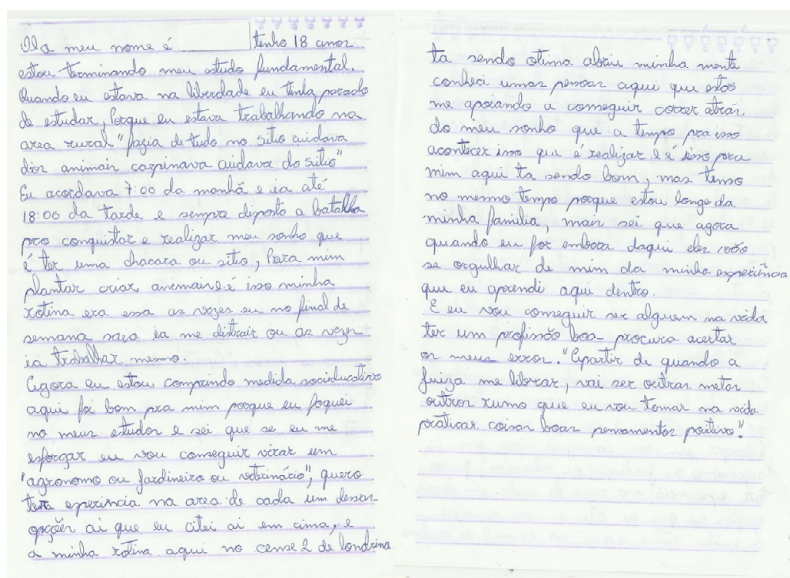 Ola meu nome é tenho 18 anos
estou terminando meu estudo fundamental.
Quando eu estava na liberdade eu tinha parado
de estudar, Porque eu estava trabalhando na
area rural "fazia de tudo no sitio cuidava
dos animais carpinava cuidava do sitio"
Eu acordava 7:00 da manhã e ia até
18:00 da tarde e sempre disposto a batalha
pra conquistar e realizar meu sonho que
é ter uma chacara ou sitio, Para mim
plantar criar animais e é isso minha
rotina era essa as vezes eu no final de
semana saia ia me distrair ou as vezes
ia trabalhar mesmo.
Agora eu estou comprindo medida socieducativa
aqui foi bom pra mim porque eu foquei
no meus estudos e sei que se eu me
esforçar eu vou conseguir virar um
"agronomo ou Jardineiro ou veterinário", quero
ter eperincia na area de cada um dessas
opções ai que eu citei ai em cima, e
a minha rotina aqui no cense 2 de londrina
ta sendo otima abriu minha mente
conheci umas pessoas aqui que estão
me apoiando a conseguir correr atras
do meu sonho que a tempo pra isso
acontecer isso que é realizar e é isso pra
mim aqui ta sendo bom, mas tenso
no mesmo tempo porque estou longe da
minha familia, mais sei que agora
quando eu for embora daqui eles vão
se orgulhar de mim da minha experiência
que eu aprendi aqui dentro.
E eu vou conseguir ser alguem na vida
ter um profissão boa procura acertar
os meus erros. "Apartir de quando a
Juiza me librar, vai ser outras metas
outros rumo que eu vou tomar na vida
praticar coisas boas pensamentos positivo".